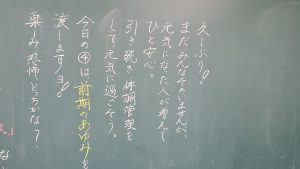 久しぶり！
まだみんなそろいませんが、
元気になった人が増えて
ひと安心。
引き続き体調管理を
して元気に過ごそう。
今日の④は、前期のあゆみを
渡しますヨ！
楽しみ？恐怖？どっちかな？